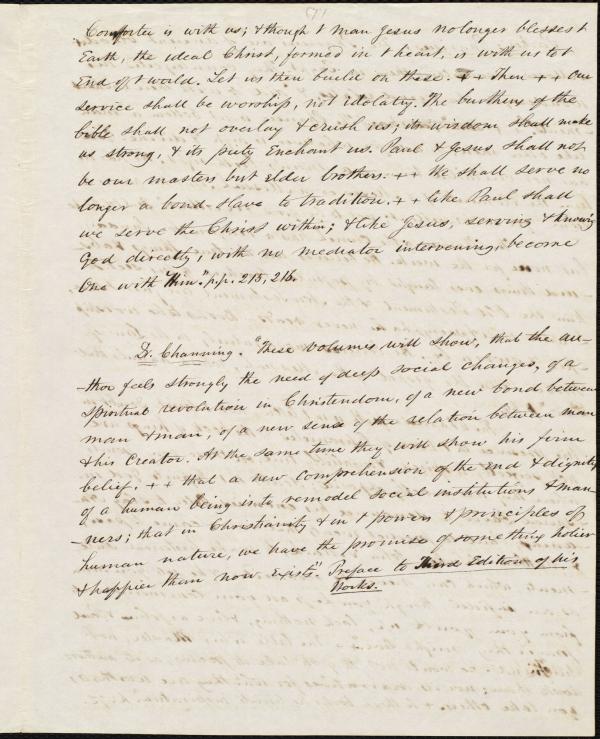 Comforter is with us; & though t man Jesus no longer blesses t
Earth, the ideal Christ, formed in t heart, is with us to t
End of t world. Let us then build on these. + + Then + + our
service shall be worship, not idolatry. The burthens of the
bible shall not overlay & crush us; its wisdom shall make
us strong, & its piety Enchant us. Paul & Jesus shall not
be our masters but Elder brothers. + + We shall serve no
longer a bond-slave to tradition. + + like Paul shall
we serve the Christ within; & like Jesus, serving & knowing
God directly, with no mediator intervening, become
One with Him." p.p. 215, 216.
Dr. Channing. "These volumes will show, that the au-
-thor feels strongly the need of deep social changes, of a
spiritual revolution in Christendom, of a new bond between
man & man, of a new sense of the relation between man
& his Creator. At the same time they will show his firm
belief. + + that a new comprehension of the End & dignity
of a human being is to remodel social institutions & man-
-ners; that in Christianity & in t powers & principles of
human nature, we have the promise of something holier
& happier than now Exists". Preface to Third Edition of his
Works.